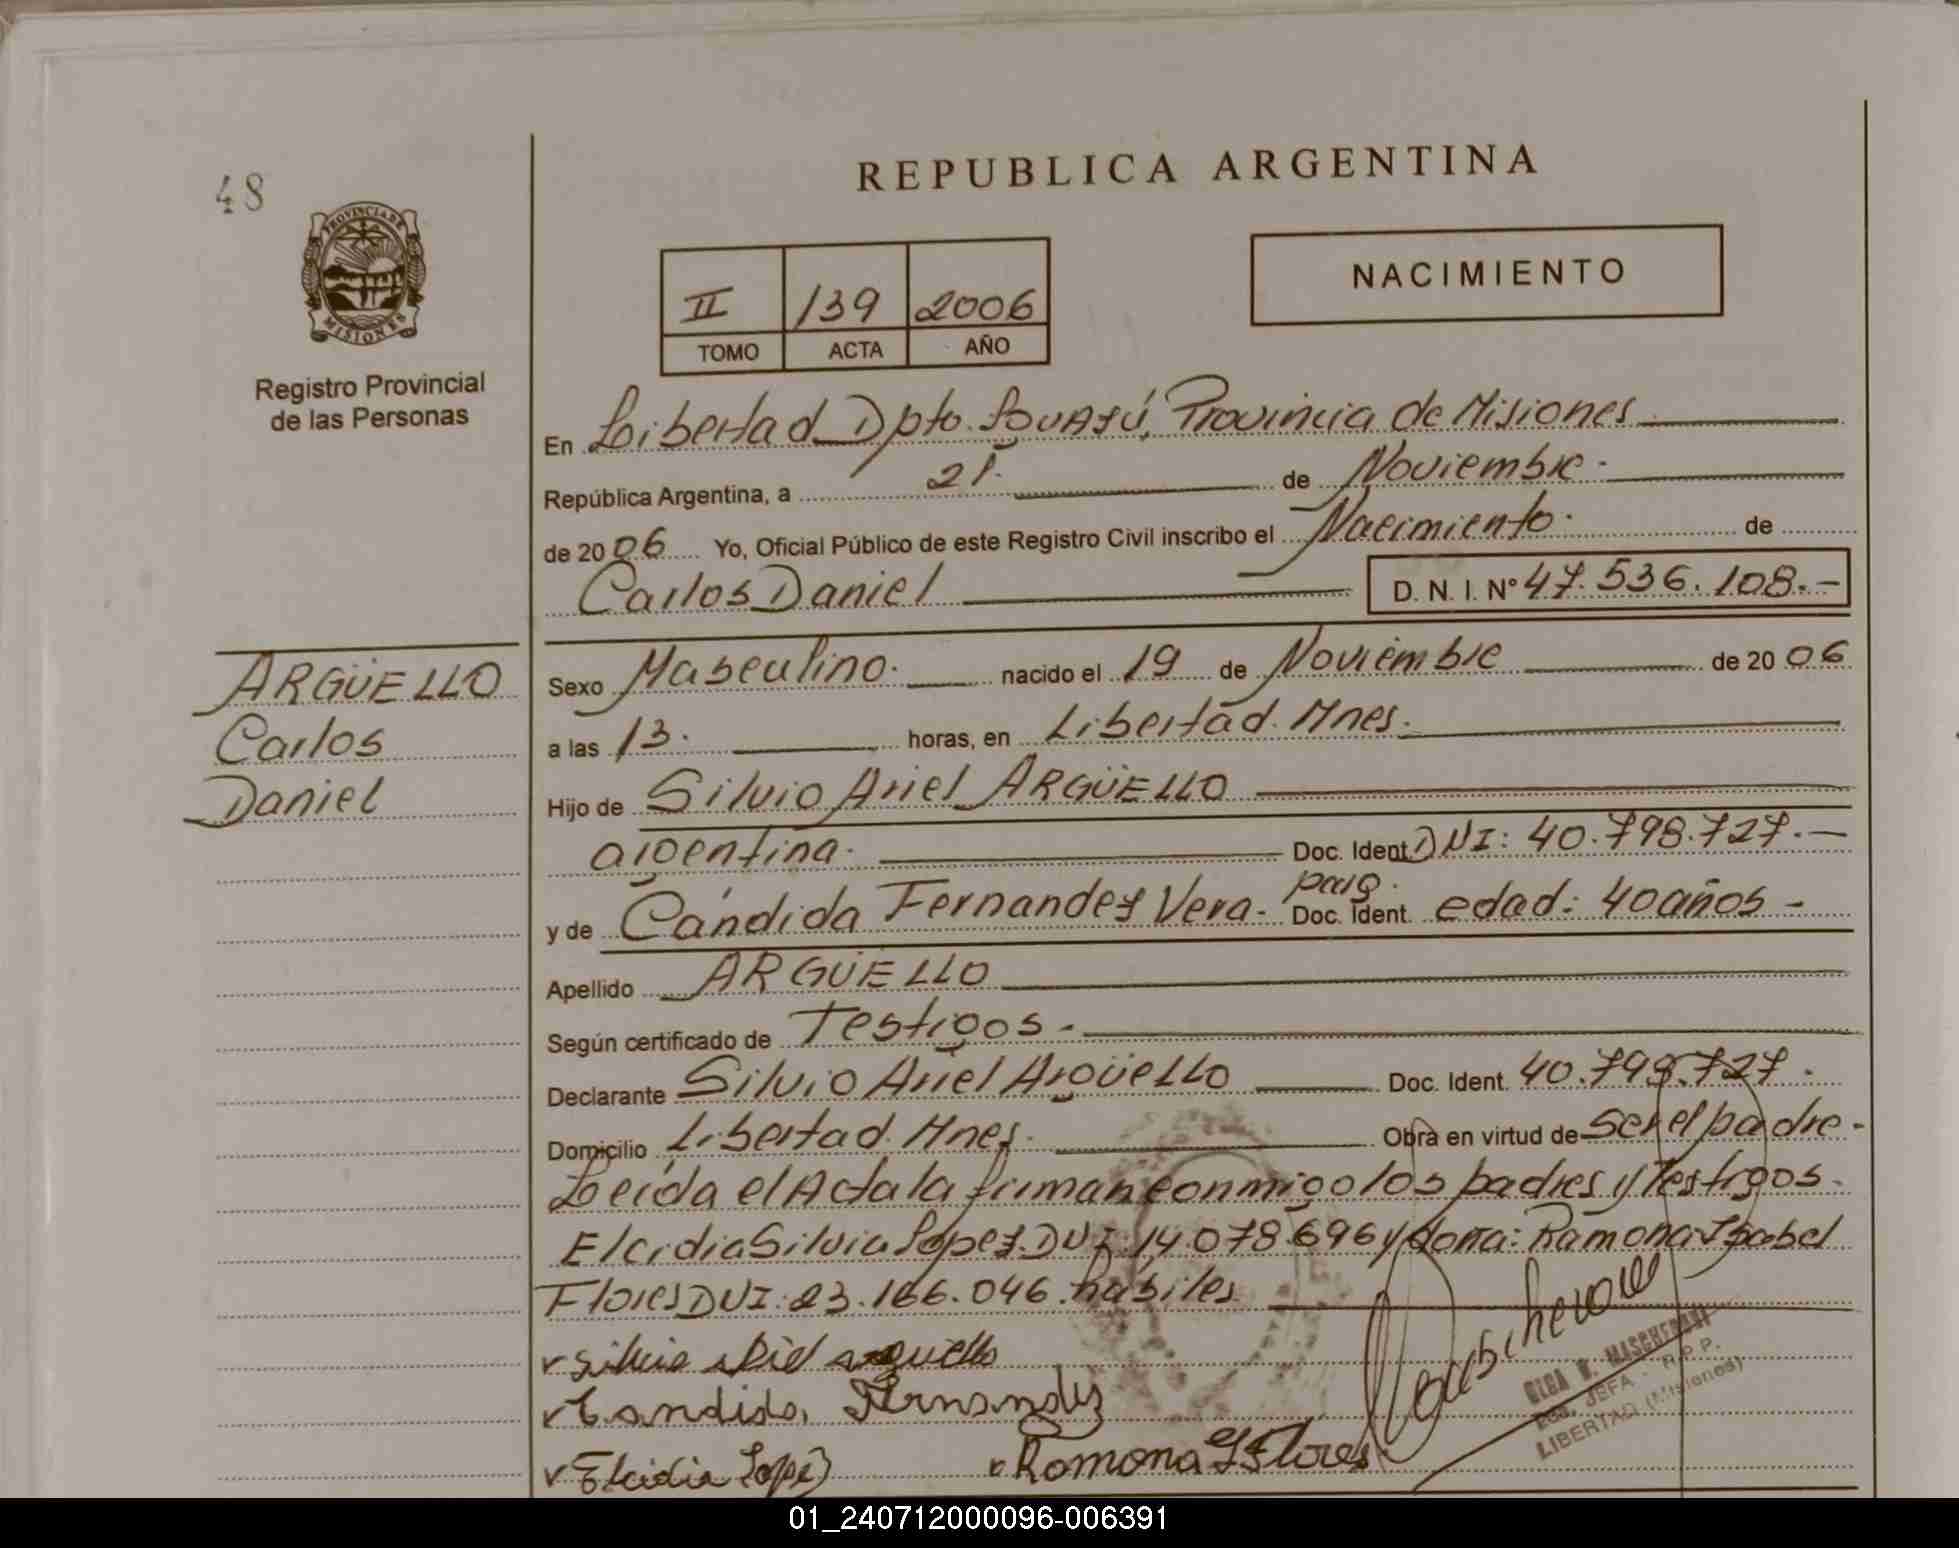 48
REPUBLICA ARGENTINA
PROVINCIA DE
MISIONES
Registro Provincial
de las Personas
II 139 2006
TOMO ACTA AÑO
NACIMIENTO
En Libertad Dpto. Iguazú, Provincia de Misiones
República Argentina, a 21. de Noviembre.
de 2006 Yo, Oficial Público de este Registro Civil inscribo el Nacimiento. de
Carlos Daniel D. N. I. Nº 47.536.108.-
ARGÜELLO
Carlos
Daniel
Sexo Masculino. nacido el 19 de Noviembre de 2006
a las 13. horas, en Libertad. Mnes.
Hijo de Silvio Ariel ARGÜELLO
argentina. Doc. Ident. DNI: 40.798.727.-
y de Cándida Fernandez Vera- parag. Doc. Ident. edad: 40 años -
Apellido ARGÜELLO
Según certificado de Testigos.-
Declarante Silvio Ariel Argüello Doc. Ident. 40.798.727.
Domicilio Libertad. Mnes. Obra en virtud de ser el padre-
Leída el Acta la firman conmigo los padres y Testigos.
Elcidia Silvia Lopez. DNI 14.078.696 y doña: Ramona Isabel
Flores DNI: 23.166.046. hábiles
Silvio Ariel Arguello
Candida, Fernandez
Elcidia Lopez Ramona I Flores
OLGA MASCHERONI
JEFA R.P.P.
LIBERTAD (Misiones)
01_240712000096-006391